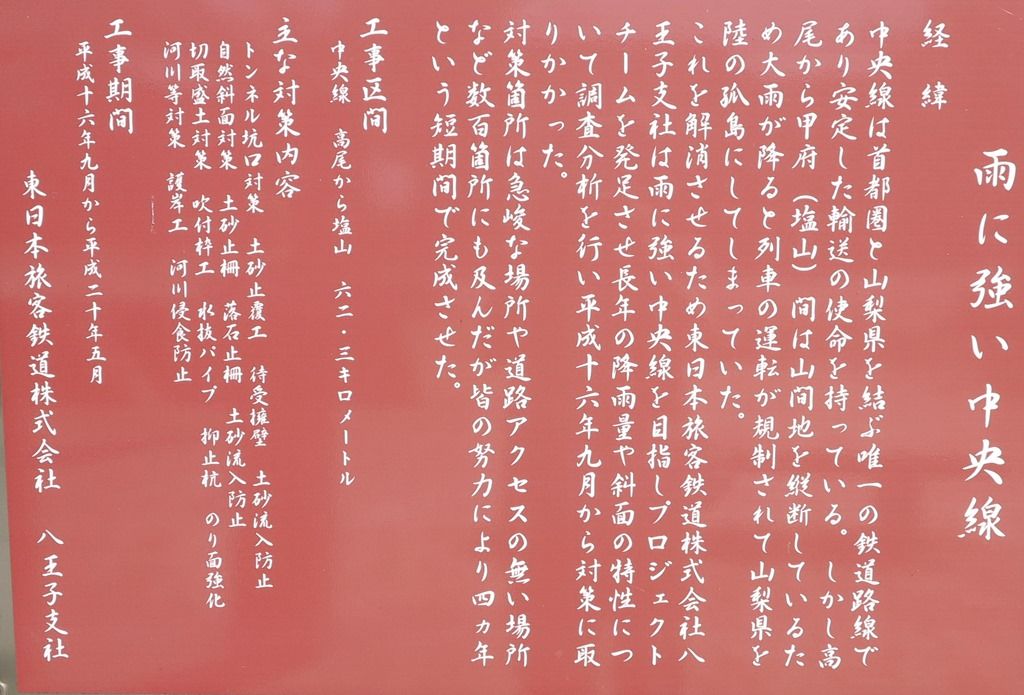 雨に強い中央線
経緯
中央線は首都圏と山梨県を結ぶ唯一の鉄道路線で
あり安定した輸送の使命を持っている。しかし高
尾から甲府（塩山）間は山間地を縦断しているた
め大雨が降ると列車の運転が規制されて山梨県を
陸の孤島にしてしまっていた。
これを解消させるため東日本旅客鉄道株式会社八
王子支社は雨に強い中央線を目指しプロジェクト
チームを発足させ長年の降雨量や斜面の特性につ
いて調査分析を行い平成十六年九月から対策に取
りかかった。
対策箇所は急峻な場所や道路アクセスの無い場所
など数百箇所にも及んだが皆の努力により四ヵ年
という短期間で完成させた。
工事区間
中央線　高尾から塩山　六二・三キロメートル
主な対策内容
トンネル坑口対策　土砂止覆工　待受擁壁　土砂流入防止
自然斜面対策　土砂止柵　落石止柵　土砂流入防止
切取盛土対策　吹付枠工　水抜パイプ　抑止杭　のり面強化
河川等対策　護岸工　河川侵食防止
工事期間
平成十六年九月から平成二十年五月
東日本旅客鉄道株式会社　八王子支社